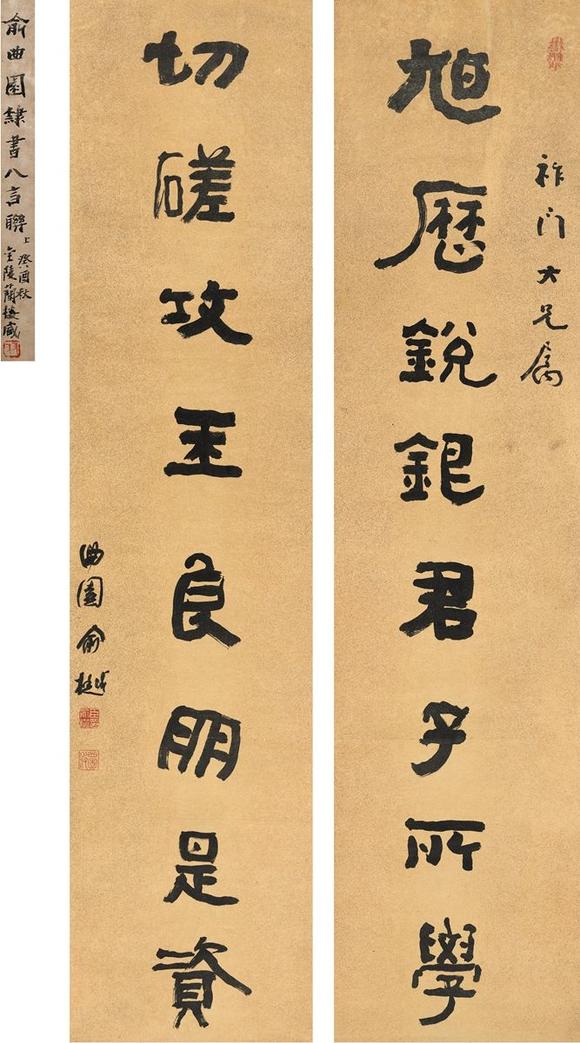 祚门大兄屬
旭曆銳銀君子所學
切磋攻玉良朋是資
曲園俞樾
俞曲園隸書八言聯上
癸酉秋
金陵